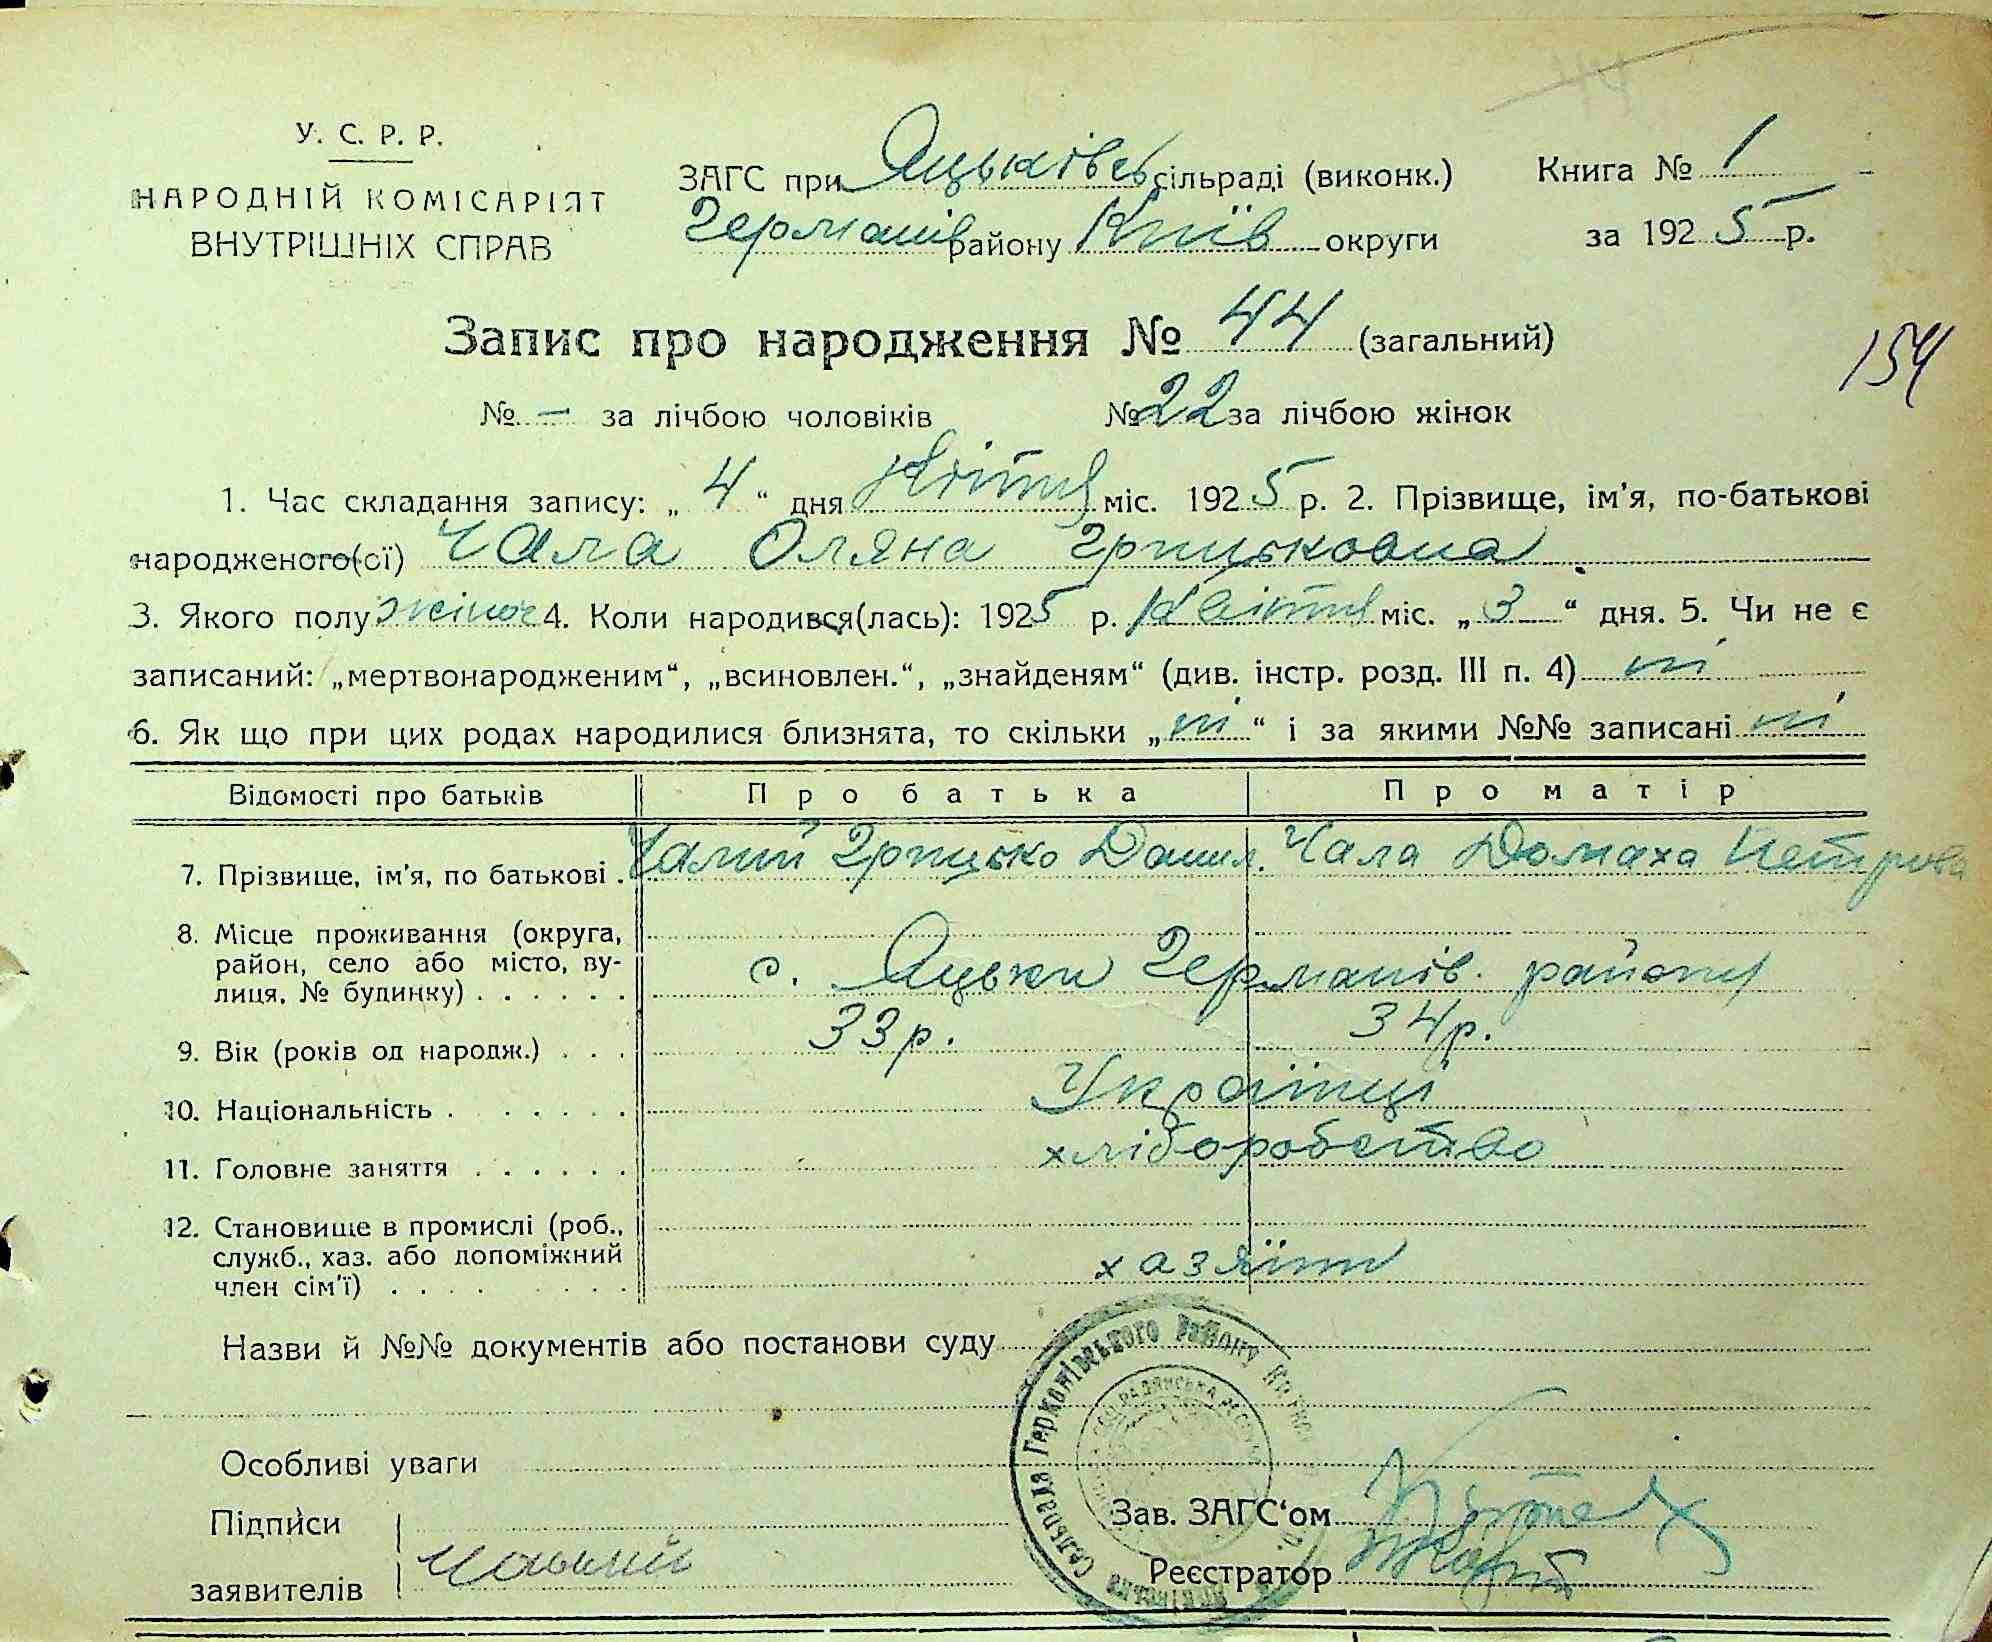 У. С. Р. Р.
НАРОДНІЙ КОМІСАРІЯТ
ВНУТРІШНІХ СПРАВ
ЗАГС при Яцьківсь сільраді (виконк.)
Германів району Київ округи
Книга № 1
за 1925 р.
Запис про народження № 44 (загальний)
154
№ — за лічбою чоловіків № 22 за лічбою жінок
1. Час складання запису: „ 4 “ дня Квітня міс. 1925 р. 2. Прізвище, ім'я, по-батькові
народженого(ої) Чала Оляна Грицьковна
3. Якого полу жіноч 4. Коли народився(лась): 1925 р. Квітня міс. „ 3 “ дня. 5. Чи не є
записаний: „мертвонародженим“, „всиновлен.“, „знайденям“ (див. інстр. розд. III п. 4) ні
6. Як що при цих родах народилися близнята, то скільки „ ні “ і за якими №№ записані ні
Відомості про батьків Про батька Про матір
7. Прізвище, ім'я, по батькові . Чалий Грицько Данил. Чала Домаха Петрова
8. Місце проживання (округа,
район, село або місто, ву-
лиця, № будинку) . . . . . . с. Яцьки Германів. району
9. Вік (років од народж.) . . . 33 р. 34 р.
10. Національність . . . . . . . Українці
11. Головне заняття . . . . . . хліборобство
12. Становище в промислі (роб.,
служб., хаз. або допоміжний
член сім'ї) . . . . . . . . хазяїни
Назви й №№ документів або постанови суду
Особливі уваги
Підписи
заявителів
Зав. ЗАГС‘ом
Реєстратор